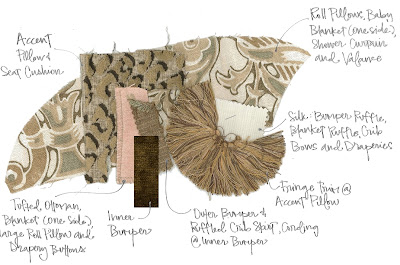 Accent
Pillow &
Seat Cushion
Roll Pillows, Baby
Blanket (one side),
Shower Curtain
and Valance
Silk: Bumper Ruffle,
Blanket Ruffle, Crib
Bows and Draperies
Fringe Trim @
Accent Pillow
Outer Bumper &
Ruffled Crib Skirt, Cording
@ Inner Bumper
Inner
Bumper
Tufted Ottoman,
Blanket (one side)
Large Roll Pillow and
Drapery Buttons